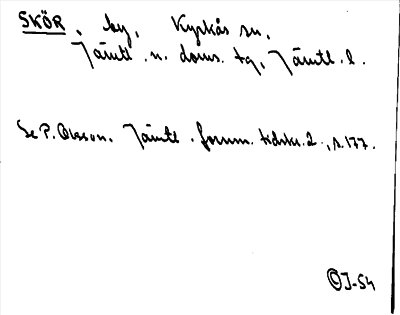 SKÖR, by, Kyrkås sn,
Jämtl. n. doms. tg, Jämtl. l.
Se P. Olsson. Jämtl. fornm. tidskr. 2, s. 177.
© J-54